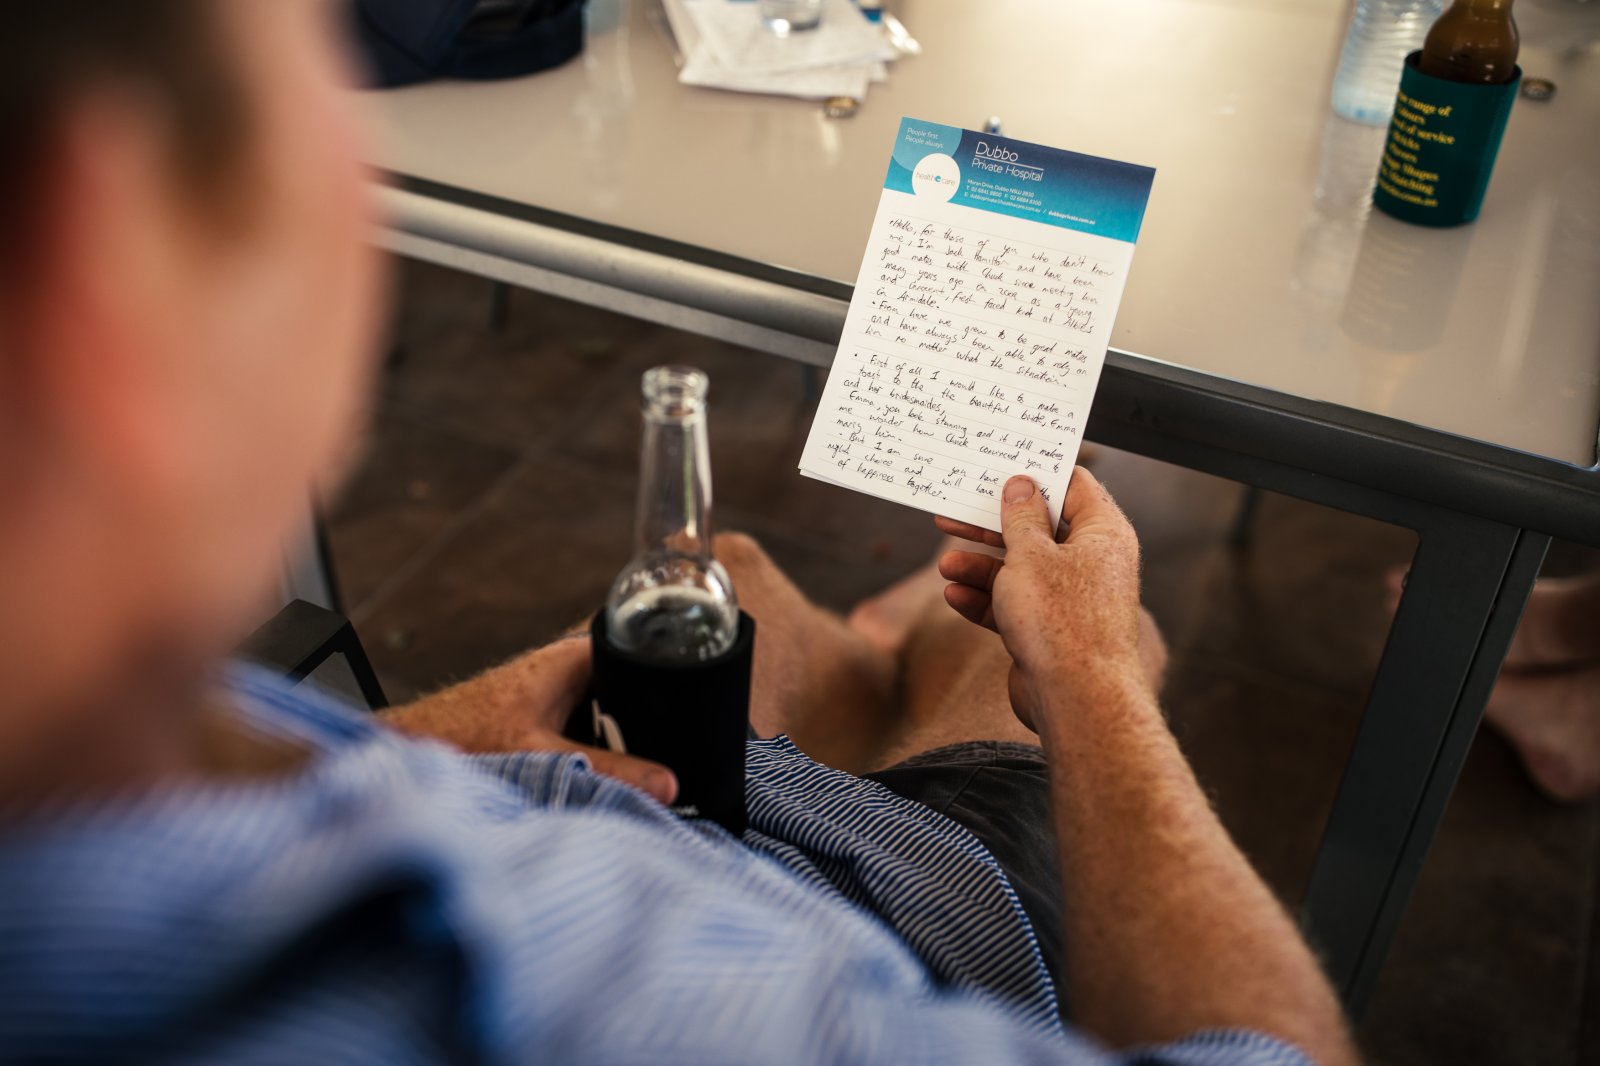 People first.
People always.
healthecare
Dubbo
Private Hospital
Moran Drive, Dubbo NSW 2830
/ dubboprivate.com.au
•Hello, for those of you who don't know
me, I'm Jack Hamilton and have been
good mates with Chuck since meeting him
many years ago in 2009 as a young
and innocent, fresh faced kid at Albies
in Armidale.
•From here we grew to be great mates
and have always been able to rely on
him no matter what the situation.
• First of all I would like to make a
toast to the the beautiful bride, Emma
and her bridesmaides,
Emma, you look stunning and it still makes
me wonder how Chuck convinced you to
marry him.
•But I am sure you have the
right choice and will have
of happiness together.
range of
of service
Shapes
Matching